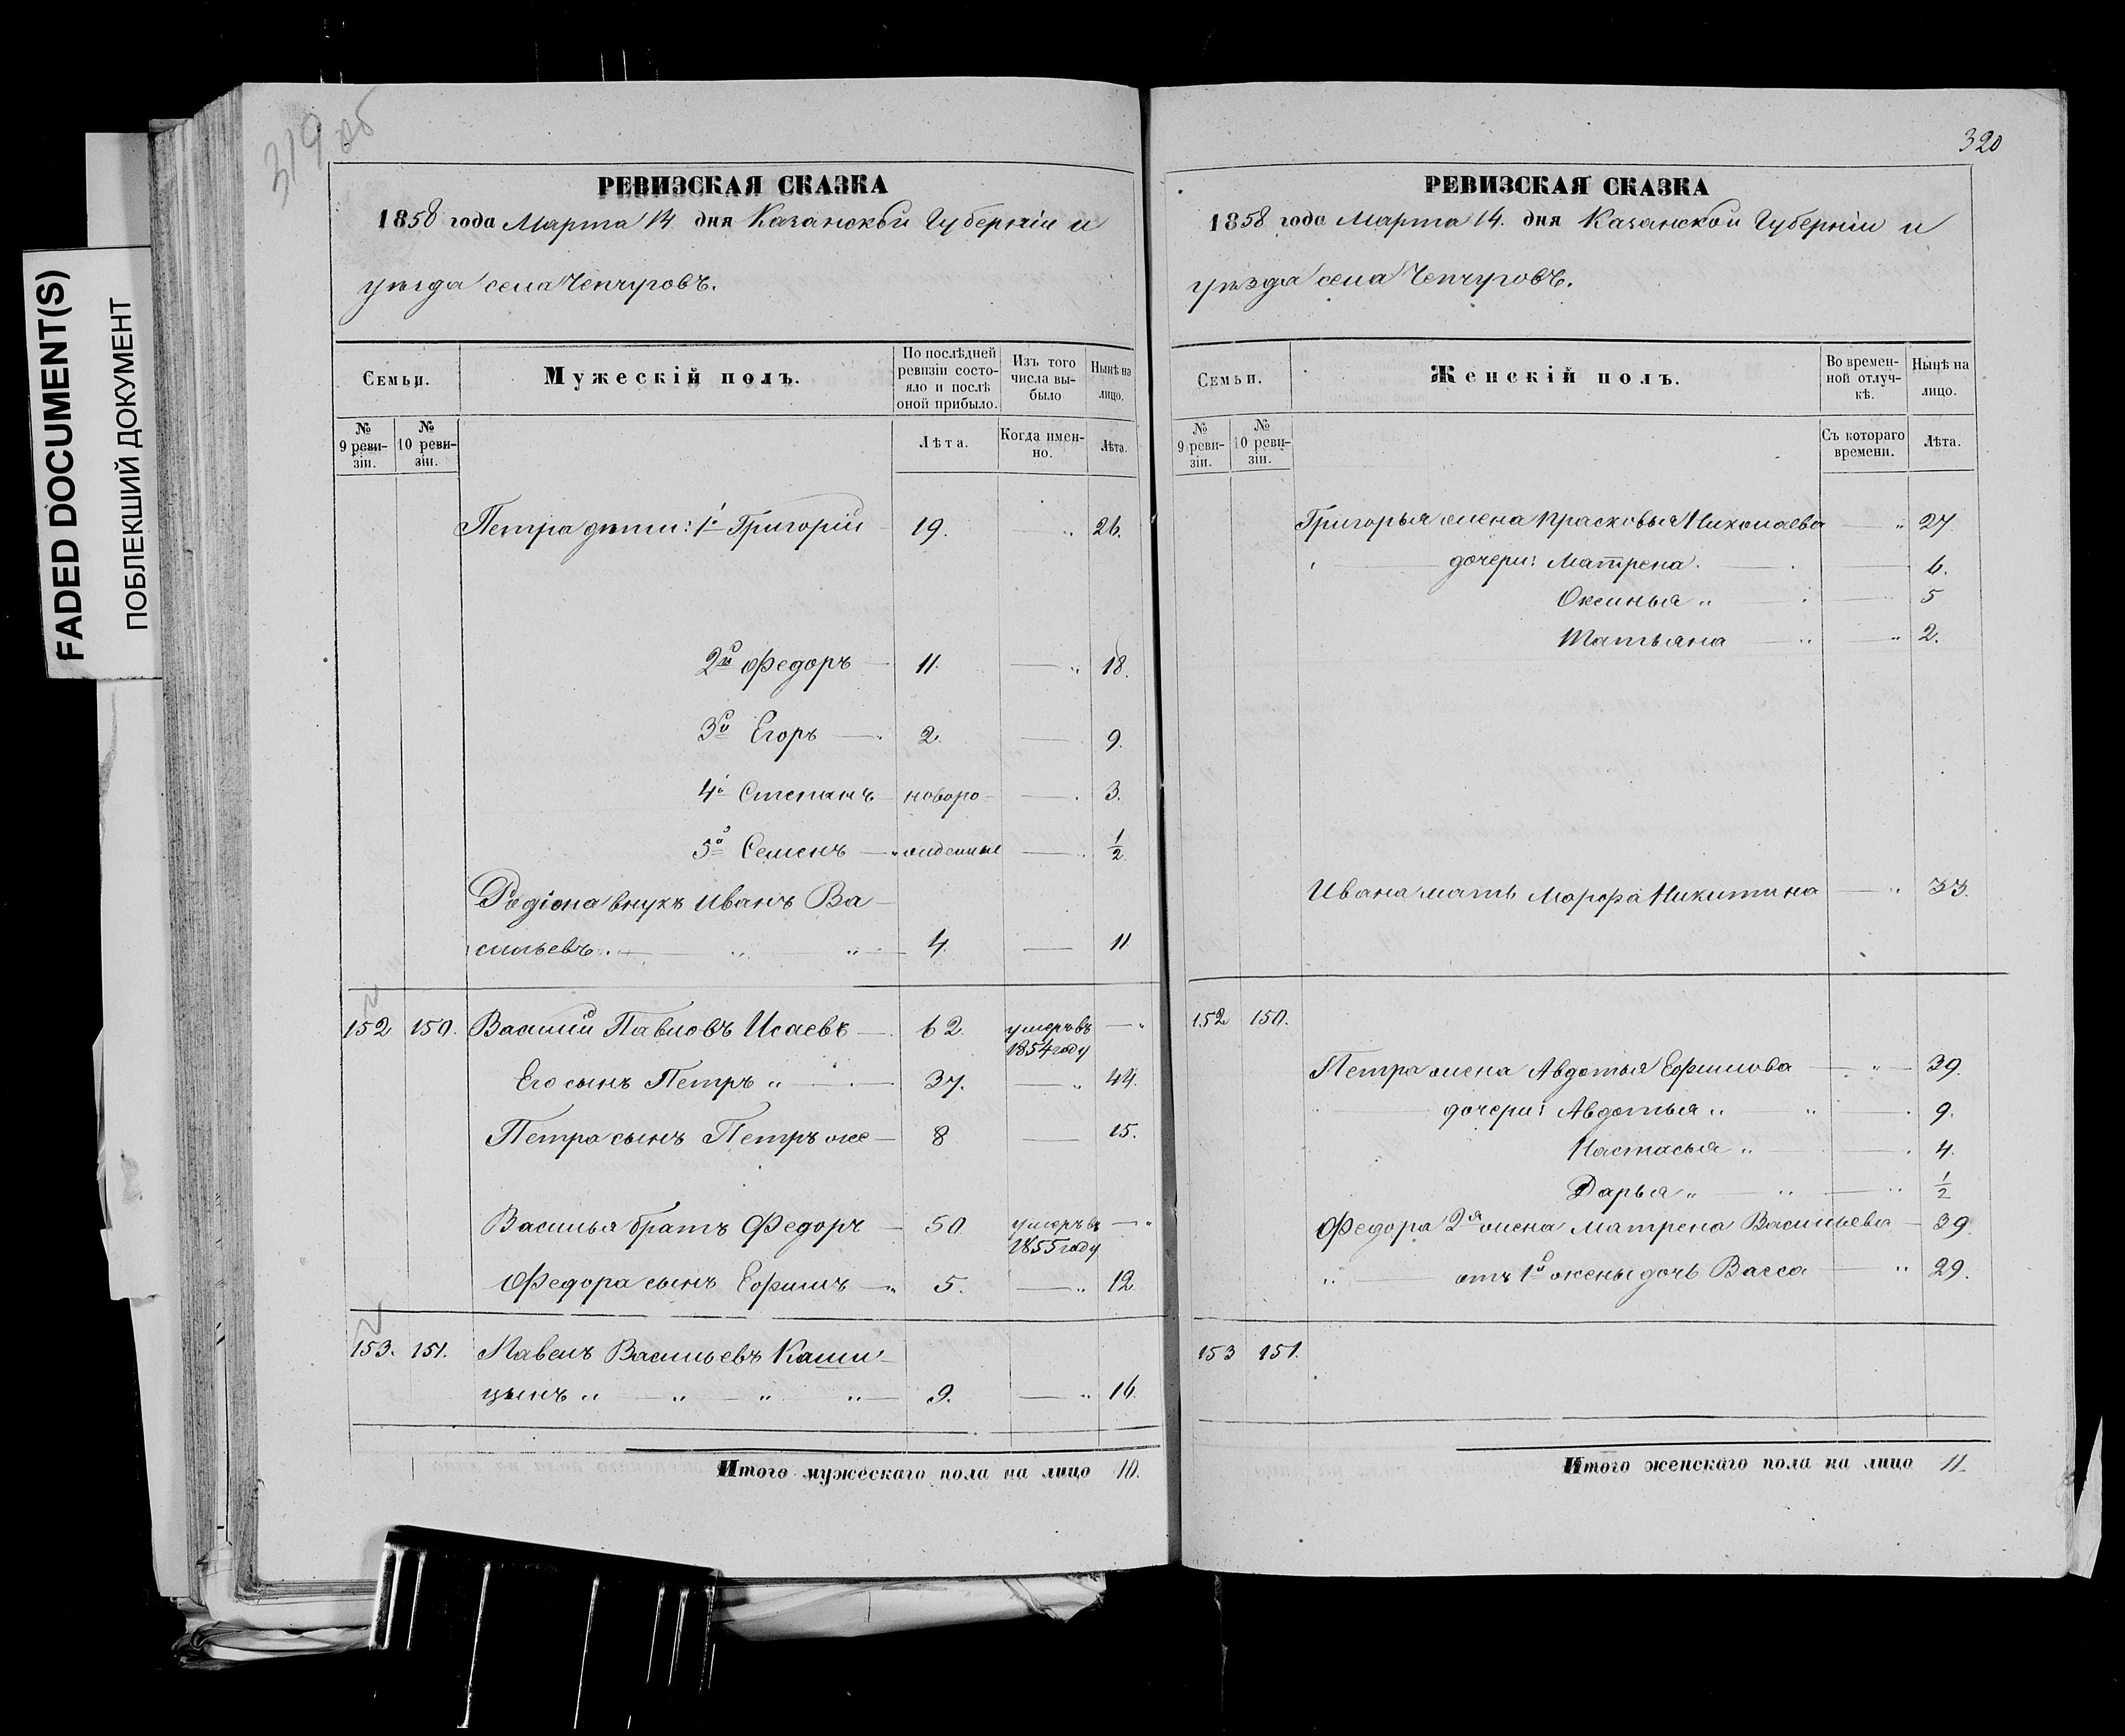 FADED DOCUMENT(S)
ПОБЛЕКШИЙ ДОКУМЕНТ
319 об
РЕВИЗСКАЯ СКАЗКА
1858 года Марта 14. дня Казанской Губерніи и
уѣзда села Чепчуговъ.
Семьи.
Мужескій полъ.
По послѣдней ревизіи состояло и послѣ оной прибыло.
Изъ того числа выбыло
Нынѣ на лицо.
№ 9 ревизіи.
№ 10 ревизіи.
Лѣта.
Когда именно.
Лѣта.
Петра дѣти: 1й Григорій 19. „ 26.
2й Федоръ — 11. — „ 18.
3й Егоръ — 2. — 9.
4й Степанъ новоро- — 3.
5й Семенъ — „ жденные — 1/2
Родіона внукъ Иванъ Ва-
сильевъ. — „ „ — 4. — 11
152 150. Василий Павловъ Исаевъ — 62. умеръ въ — „
1854 году
Его сынъ Петръ „ — 37. — „ 44.
Петра сынъ Петръ же — 8 — 15.
Василья братъ Федоръ — 50 умеръ въ — „
1855 году
Федора сынъ Ефимъ — „ 5. — „ 12.
153. 151. Павелъ Васильевъ Каши-
цынъ „ — „ — „ „ — 9. — „ 16.
Итого мужескаго пола на лицо 10.
320
РЕВИЗСКАЯ СКАЗКА
1858 года Марта 14. дня Казанской Губерніи и
уѣзда села Чепчуговъ.
Семьи.
Женскій полъ.
Во временной отлучкѣ.
Нынѣ на лицо.
№ 9 ревизіи.
№ 10 ревизіи.
Съ котораго времени.
Лѣта.
Григорья жена Прасковья Николаева — „ 27.
дочери: Матрена. — 6.
Оксинья „ — 5
Татьяна — „ „ 2.
Ивана мать Марфа Никитина — „ 33.
152 150.
Петра жена Авдотья Ефимова — „ — 39.
дочери: Авдотья „ „ — 9.
Настасья „ — 4.
Дарья „ — „ — „ 1/2
Федора 2я жена Матрена Васильева — 39.
„ — отъ 1й жены дочь Васса — „ 29.
153 151.
Итого женскаго пола на лицо 11.